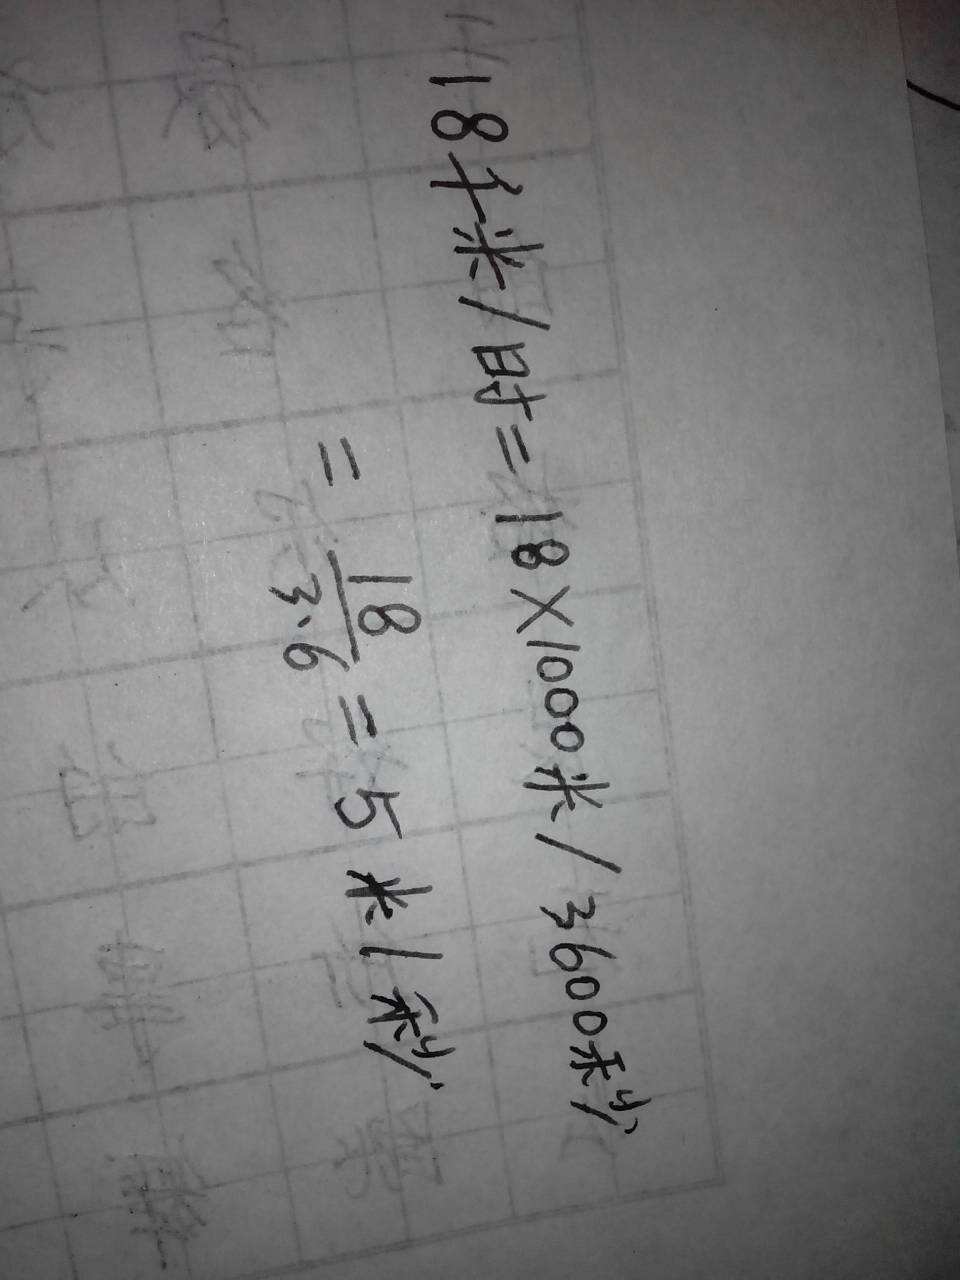 18千米/时=18×1000米/3600秒
=18/3.6=5米/秒